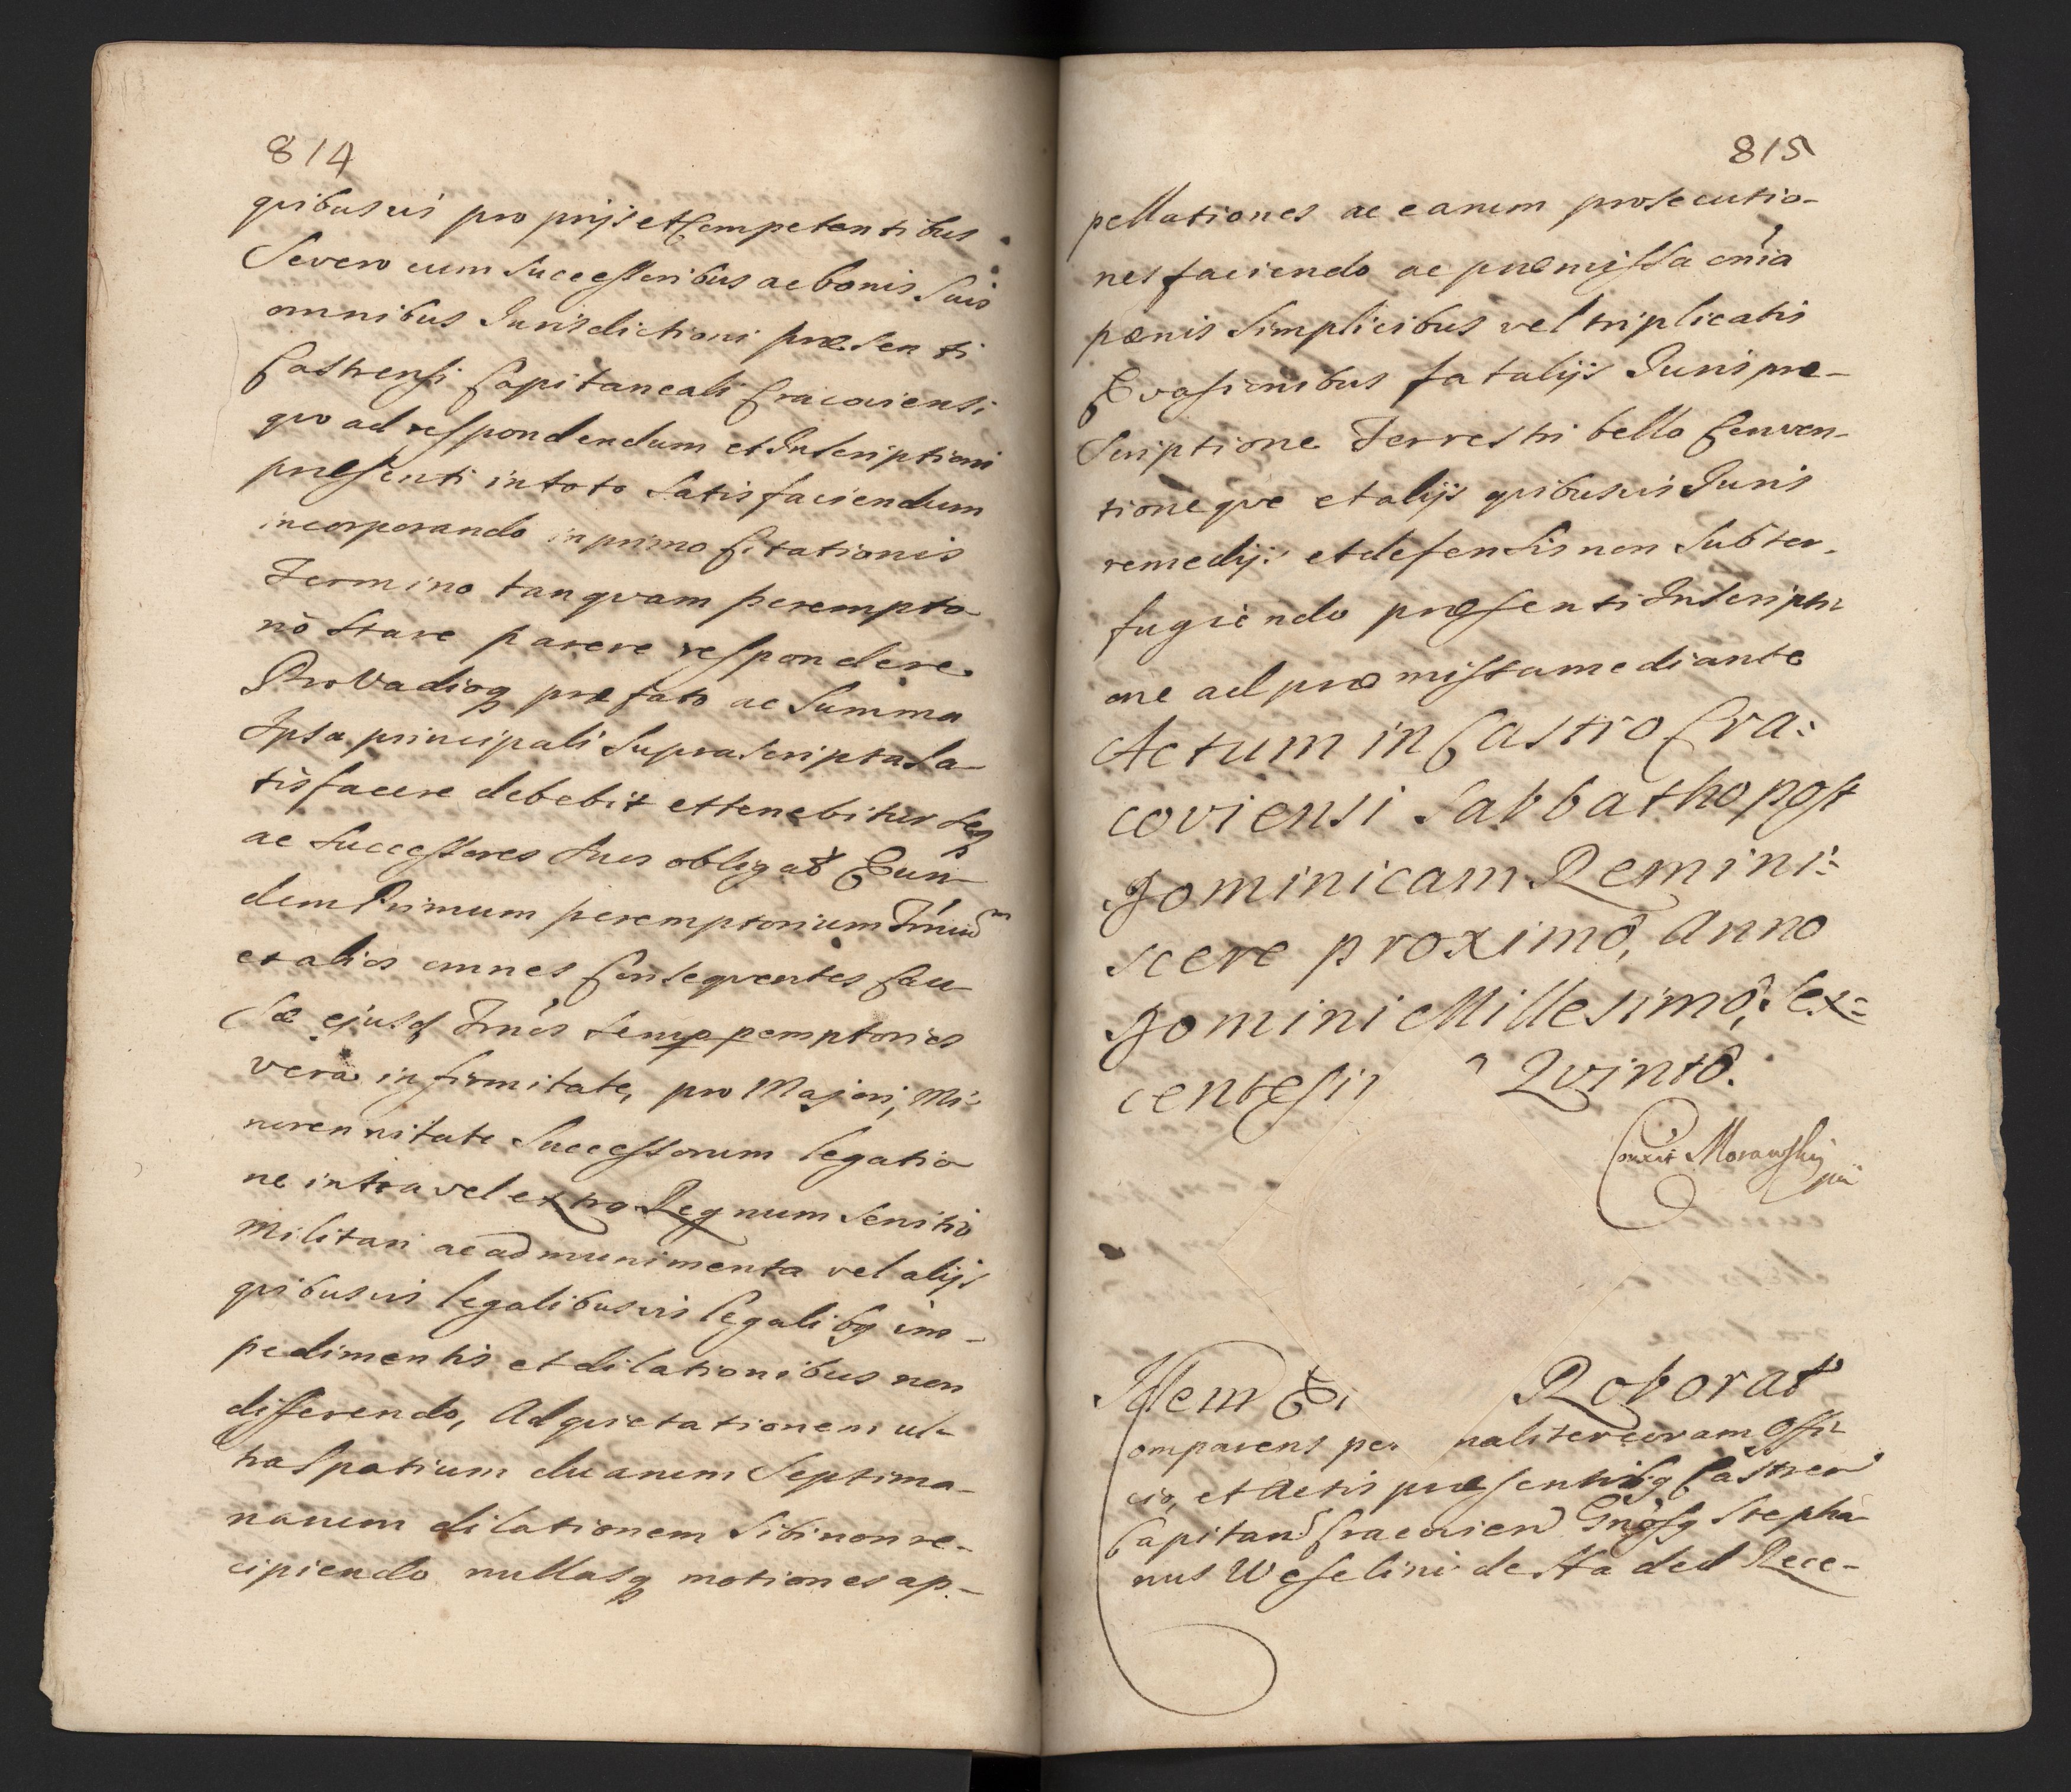 814
quibusvis proprijs et Competentibus
Severo cum Successoribus ac bonis Suis
omnibus Jurisdictioni præsenti
Castrensi Capitaneali Cracoviensi
quo ad respondendum et Inscriptioni
præsenti in toto Satisfaciendum
incorporando in primo Citationis
Termino tanquam perempto-
riô Stare parere respondere
Pro Vadioq præfato ac Summa
Ipsa principali Suprascripta Sa-
tisfacere debebit et tenebitur Seq
ac Successores Suos obligat Eun-
dem Primum peremptorium Tminũ
et alios omnes Consequentes Cau-
sæ ejusd Tmos Semp pemptorios
vera infirmitate, pro Majori, Mi-
norennitate Successorum legatio
ne intra vel extra Regnum Servitio
Militari ac ad munimenta vel alijs
quibusvis legalibusvis legalibq im-
pedimentis et dilationibus non
differendo, Ad quietationem ul-
tra Spatium duarum Septima-
narum dilationem Sibi non re-
cipiendo nullasq motiones ap-
815
pellationes ac earum prosecutio-
nes faciendo ac præmissa oñia
pænis Simplicibus vel triplicatis
Evasionibus fatalijs Juris præ-
Scriptione Terrestri bello Conven-
tioneque et alijs quibusvis Juris
remedijs et defensis non Subter-
fugiendo præsenti Inscripti
one ad præmissa mediante
Actum in Castro Cra:
coviensi Sabbatho post
Dominicam Remini:
scere proximô, Anno
Domini Millesimô, Sex=
centesi Quintô.
Conxit Morawsky
Idem E Roborat
omparens per naliter coram Offi-
cio, et Actis præsentibq Castren
Capitan Cracovien Gnosq Stepha-
nus Weselini de Haded Rece-